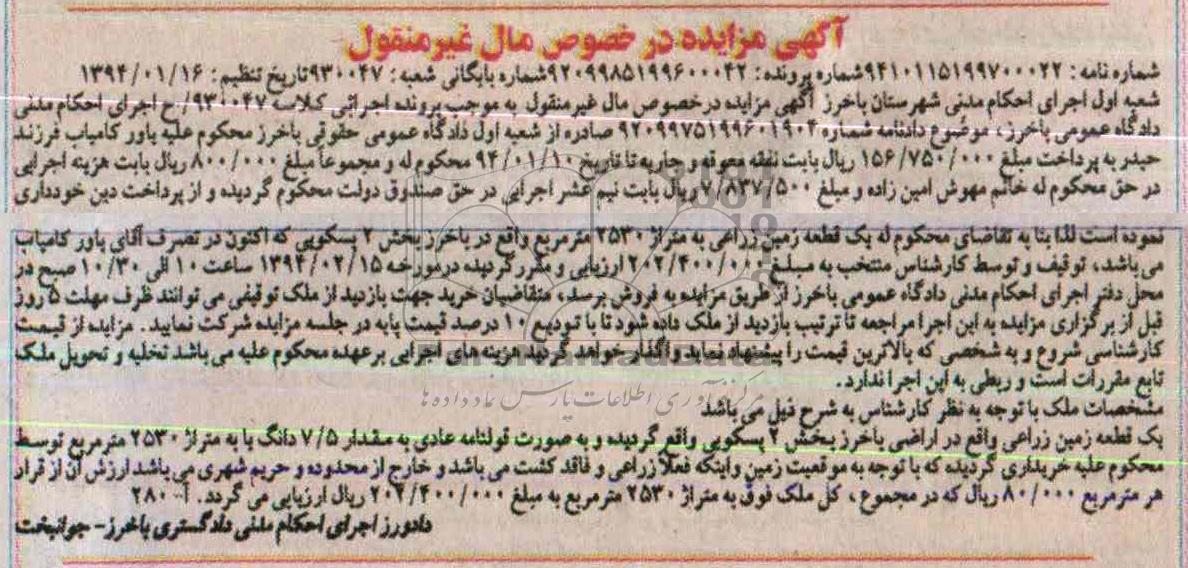 آگهی مزایده در خصوص مال غیرمنقول
شماره نامه: ۹۴۱۰۱۱۵۱۹۹۷۰۰۰۲۲ شماره پرونده: ۹۲۰۹۹۸۵۱۹۹۶۰۰۰۴۲ شماره بایگانی شعبه: ۹۳۰۰۴۷ تاریخ تنظیم: ۱۳۹۴/۰۱/۱۶
شعبه اول اجرای احکام مدنی شهرستان باخرز آگهی مزایده در خصوص مال غیرمنقول به موجب پرونده اجرائی کلاسه ۹۳۰۰۴۷/ح اجرای احکام مدنی
دادگاه عمومی باخرز، موضوع دادنامه شماره ۹۲۰۹۹۷۵۱۹۹۶۰۱۹۰۴ صادره از شعبه اول دادگاه عمومی حقوقی باخرز محکوم علیه یاور کامیاب فرزند
حیدر به پرداخت مبلغ ۱۵۶/۷۵۰/۰۰۰ ریال بابت نفقه معوقه و جاریه تا تاریخ ۹۴/۰۱/۱۰ محکوم له و مجموعاً مبلغ ۸۰۰/۰۰۰ ریال بابت هزینه اجرایی
در حق محکوم له خانم مهوش امین زاده و مبلغ ۷/۸۳۷/۵۰۰ ریال بابت نیم عشر اجرایی در حق صندوق دولت محکوم گردیده و از پرداخت دین خودداری
نموده است لذا بنا به تقاضای محکوم له یک قطعه زمین زراعی به متراژ ۲۵۳۰ مترمربع واقع در باخرز بخش ۲ بسکویی که اکنون در تصرف آقای یاور کامیاب
می باشد، توقیف و توسط کارشناس منتخب به مبلغ ۲۰۲/۴۰۰/۰۰۰ ارزیابی و مقرر گردیده در مورخه ۱۳۹۴/۰۲/۱۵ ساعت ۱۰ الی ۱۰/۳۰ صبح در
محل دفتر اجرای احکام مدنی دادگاه عمومی باخرز از طریق مزایده به فروش برسد، متقاضیان خرید جهت بازدید از ملک توقیفی می توانند ظرف مهلت ۵ روز
قبل از برگزاری مزایده به این اجرا مراجعه تا ترتیب بازدید از ملک داده شود تا با تودیع ۱۰ درصد قیمت پایه در جلسه مزایده شرکت نمایید. مزایده از قیمت
کارشناسی شروع و به شخصی که بالاترین قیمت را پیشنهاد نماید واگذار خواهد گردید هزینه های اجرایی برعهده محکوم علیه می باشد تخلیه و تحویل ملک
تابع مقررات است و ربطی به این اجرا ندارد.
مشخصات ملک با توجه به نظر کارشناس به شرح ذیل می باشد
یک قطعه زمین زراعی واقع در اراضی باخرز بخش ۲ بسکویی واقع گردیده و به صورت قولنامه عادی به مقدار ۷/۵ دانگ با به متراژ ۲۵۳۰ مترمربع توسط
محکوم علیه خریداری گردیده که با توجه به موقعیت زمین واینکه فعلاً زراعی و فاقد کشت می باشد و خارج از محدوده و حریم شهری می باشد ارزش آن از قرار
هر مترمربع ۸۰/۰۰۰ ریال که در مجموع، کل ملک فوق به متراژ ۲۵۳۰ مترمربع به مبلغ ۲۰۲/۴۰۰/۰۰۰ ریال ارزیابی می گردد. آ-۲۸۰
دادورز اجرای احکام مدنی دادگستری باخرز - جوانبخت
مرکز فرآوری اطلاعات پارس نماد داده ها